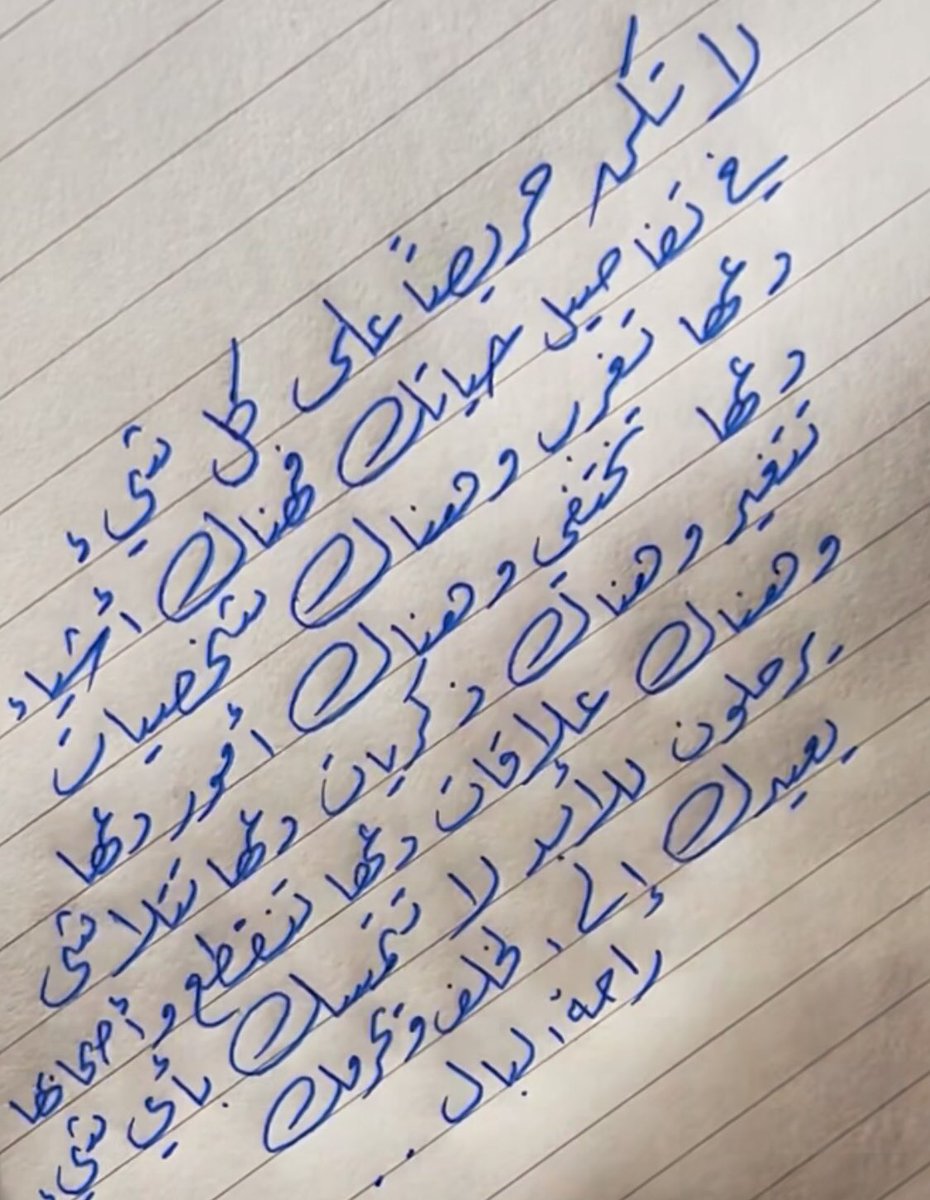 لا تكن حريصاً على كل شيء
في تفاصيل حياتك فهناك أشياء
حقها تغرب وهناك شخصيات
حقها تختفي وهناك أمور حقها
تتغير وهناك ذكريات حقها تتلاشى
وهناك علاقات حقها تنقطع وأصحابها
يرحلون للأبد لا تتمسك بأي شيء
يعيدك إلى الخلف وتحرمك
راحة البال ..